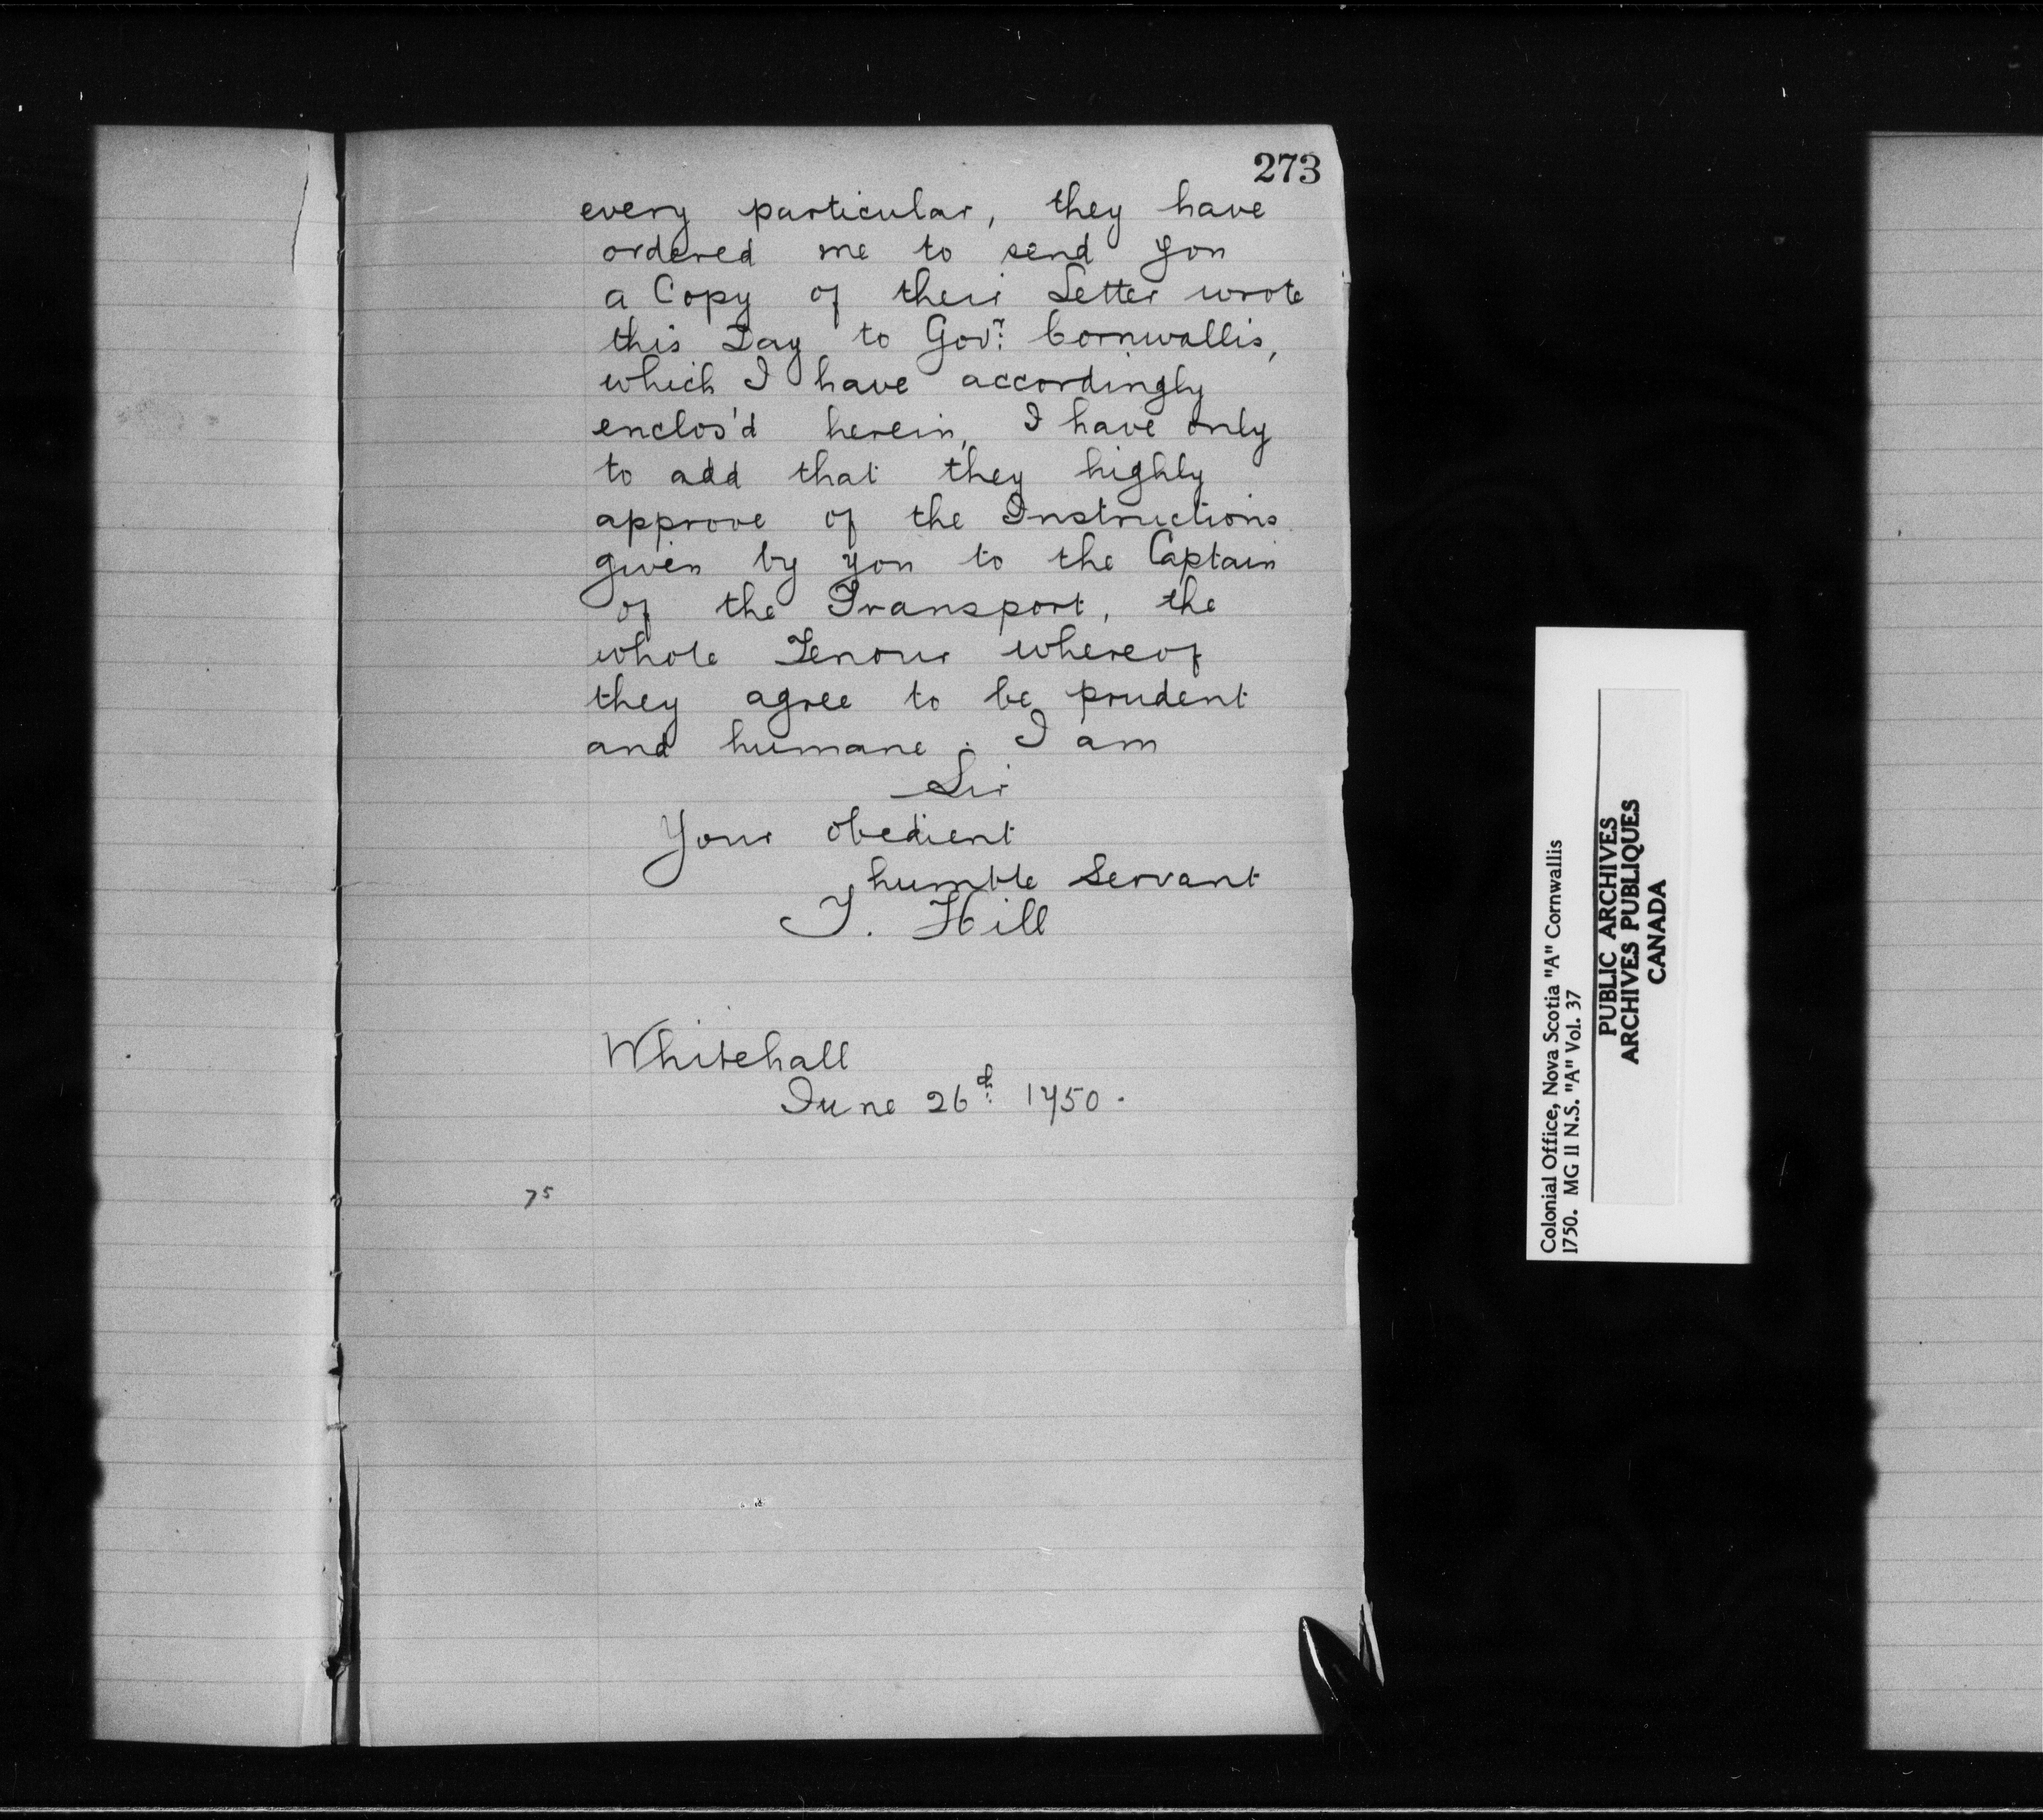 273
every particular, they have
ordered me to send you
a Copy of their Letter wrote
this Day to Gov.r Cornwallis,
which I have accordingly
enclos'd herein, I have only
to add that they highly
approve of the Instructions
given by you to the Captain
of the Transport, the
whole Tenour whereof
they agree to be prudent
and humane. I am
Sir
Your obedient
humble Servant
T. Hill
Whitehall
June 26th 1750.
75
Colonial Office, Nova Scotia "A" Cornwallis
1750. MG 11 N.S. "A" Vol. 37
PUBLIC ARCHIVES
ARCHIVES PUBLIQUES
CANADA